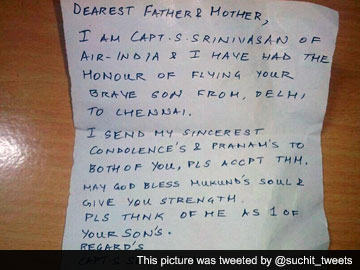 DEAREST FATHER & MOTHER,
I AM CAPT.S.SRINIVASAN OF
AIR-INDIA & I HAVE HAD THE
HONOUR OF FLYING YOUR
BRAVE SON FROM, DELHI
TO CHENNAI.
I SEND MY SINCEREST
CONDOLENCE'S & PRANAM'S TO
BOTH OF YOU, PLS ACCPT THM.
MAY GOD BLESS MUKUND'S SOUL &
GIVE YOU STRENGTH.
PLS THNK OF ME AS 1 OF
YOUR SON'S.
REGARD'S
CAPT.S.
This picture was tweeted by @suchit_tweets